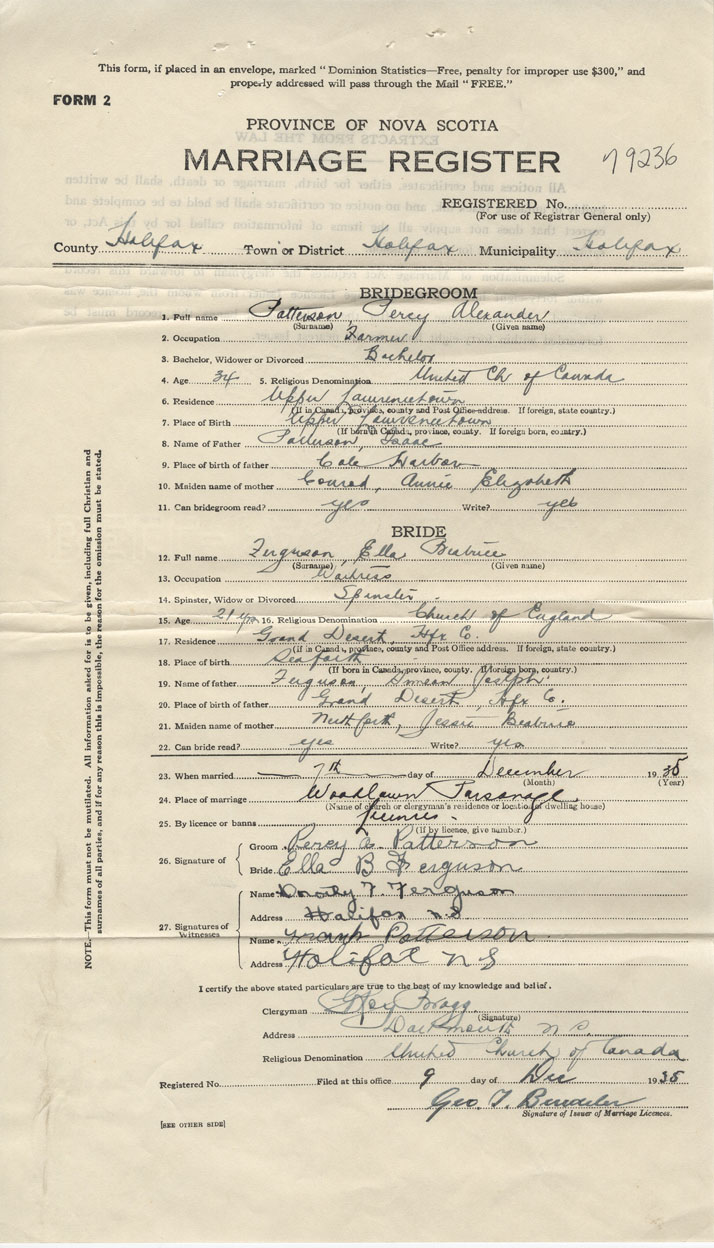 This form, if placed in an envelope, marked "Dominion Statistics—Free, penalty for improper use $300," and
properly addressed will pass through the Mail "FREE."
FORM 2
PROVINCE OF NOVA SCOTIA
MARRIAGE REGISTER 79236
REGISTERED No.
(For use of Registrar General only)
County Halifax Town or District Halifax Municipality Halifax
BRIDEGROOM
1. Full name Patterson, Percy Alexander
(Surname) (Given name)
2. Occupation Farmer
3. Bachelor, Widower or Divorced Bachelor
4. Age 34 5. Religious Denomination United Ch of Canada
6. Residence Upper Lawrencetown
(If in Canada, province, county and Post Office address. If foreign, state country.)
7. Place of Birth Upper Lawrencetown
(If born in Canada, province, county. If foreign born, country.)
8. Name of Father Patterson, Isaac
9. Place of birth of father Cole Harbor
10. Maiden name of mother Conrad, Annie Elizabeth
11. Can bridegroom read? yes Write? yes
BRIDE
12. Full name Ferguson, Ella Beatrice
(Surname) (Given name)
13. Occupation Waitress
14. Spinster, Widow or Divorced Spinster
15. Age 21 yrs 16. Religious Denomination Church of England
17. Residence Grand Desert, Hfx Co.
(If in Canada, province, county and Post Office address. If foreign, state country.)
18. Place of birth Seaforth
(If born in Canada, province, county. If foreign born, country.)
19. Name of father Ferguson, Simeon Joseph
20. Place of birth of father Grand Desert, Hfx Co.
21. Maiden name of mother Jessie Beatrice
22. Can bride read? yes Write? yes
23. When married 7th day of December 1935
(Month) (Year)
24. Place of marriage Woodlawn Parsonage
(Name of church or clergyman's residence or location of dwelling house)
25. By licence or banns License
(If by licence, give number.)
26. Signature of
Groom Percy A. Patterson
Bride Ella B Ferguson
27. Signatures of Witnesses
Name Dorothy F. Ferguson
Address Halifax N.S
Name Frank Patterson
Address Halifax N S
I certify the above stated particulars are true to the best of my knowledge and belief.
Clergyman Bragg
(Signature)
Address Dartmouth N.S.
Religious Denomination United Church of Canada
Registered No. Filed at this office 9 day of Dec 1935
Geo. T.
Signature of Issuer of Marriage Licences.
[SEE OTHER SIDE]
NOTE.—This form must not be mutilated. All information asked for is to be given, including full Christian and
surnames of all parties, and if for any reason this is impossible, the reason for the omission must be stated.